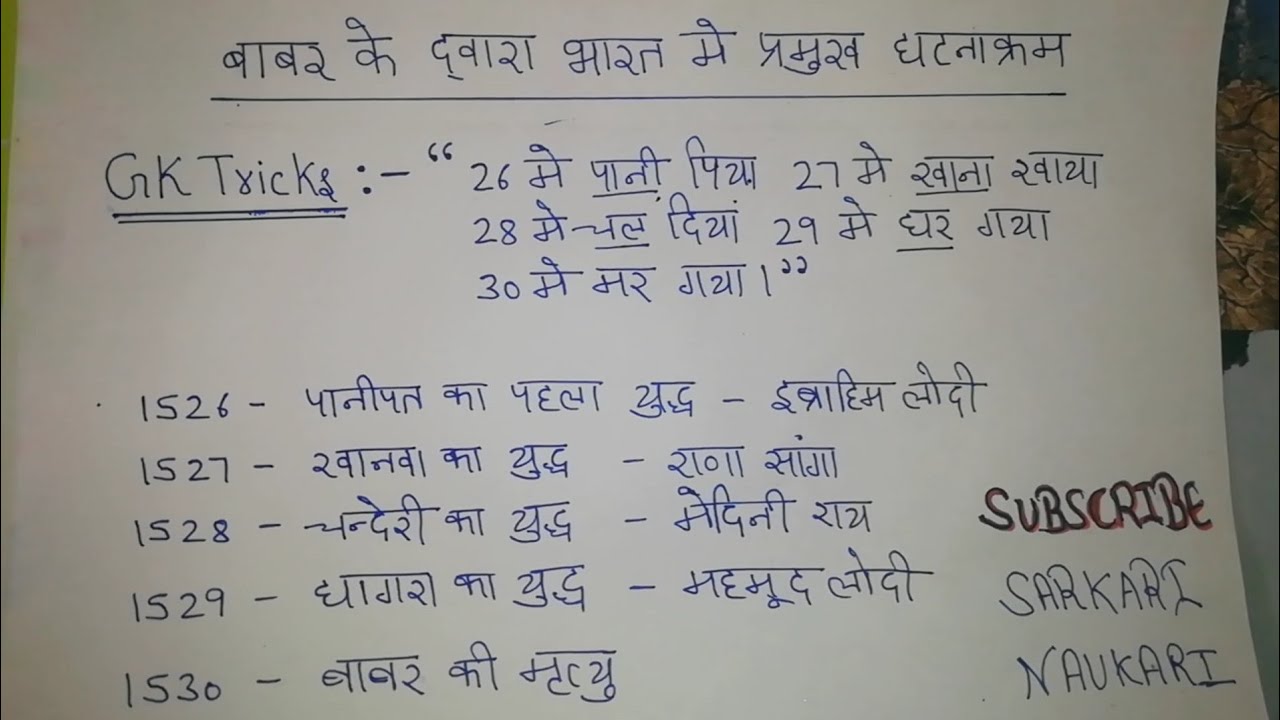 बाबर के द्वारा भारत मे प्रमुख घटनाक्रम
GK Tricks :- “ 26 मे पानी पिया 27 मे खाना खाया
28 मे चल दिया 29 मे घर गया
30 मे मर गया।”
1526 - पानीपत का पहला युद्ध - इब्राहिम लोदी
1527 - खानवा का युद्ध - राणा सांगा
1528 - चन्देरी का युद्ध - मेदिनी राय
1529 - घागरा का युद्ध - महमूद लोदी
1530 - बाबर की मृत्यु
SUBSCRIBE
SARKARI
NAUKARI